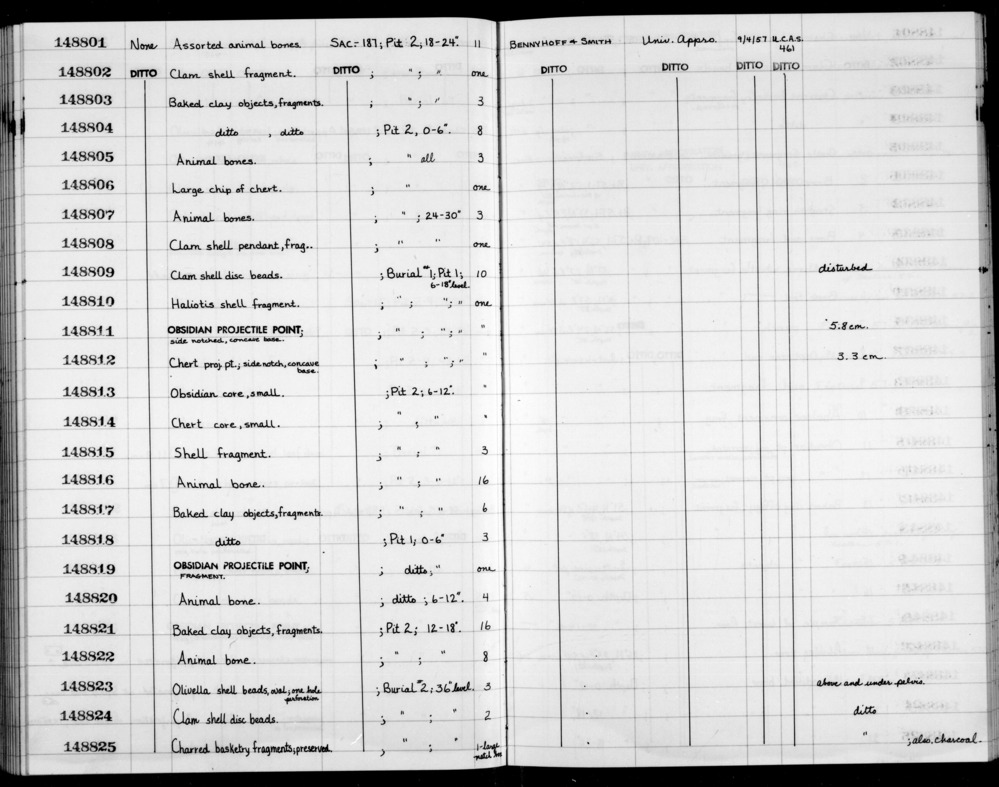 148801 None Assorted animal bones. SAC-187; Pit 2, 18-24". 11 BENNYHOFF & SMITH Univ. Appro. 9/4/57 U.C.A.S. 461
148802 DITTO Clam shell fragment. DITTO ; " ; " one DITTO DITTO DITTO DITTO
148803 Baked clay objects, fragments. ; " ; " 3
148804 ditto , ditto ; Pit 2, 0-6". 8
148805 Animal bones. ; " all 3
148806 Large chip of chert. ; " one
148807 Animal bones. ; " ; 24-30" 3
148808 Clam shell pendant, frag.. ; " " one
148809 Clam shell disc beads. ; Burial #1; Pit 1; 6-18" level. 10 disturbed
148810 Haliotis shell fragment. ; " ; "; " one
148811 OBSIDIAN PROJECTILE POINT; ; " ; "; " " 5.8 cm.
side notched, concave base.
148812 Chert proj. pt.; side notch, concave base. ; " ; "; " " 3.3 cm.
148813 Obsidian core, small. ; Pit 2; 6-12". "
148814 Chert core, small. ; " ; " "
148815 Shell fragment. ; " ; " 3
148816 Animal bone. ; " ; " 16
148817 Baked clay objects, fragments. ; " ; " 6
148818 ditto ; Pit 1, 0-6" 3
148819 OBSIDIAN PROJECTILE POINT; ; ditto; " one
FRAGMENT.
148820 Animal bone. ; ditto ; 6-12". 4
148821 Baked clay objects, fragments. ; Pit 2; 12-18". 16
148822 Animal bone. ; " ; " 8
148823 Olivella shell beads, oval; one hole perforation ; Burial #2; 36" level. 3 above and under pelvis.
148824 Clam shell disc beads. ; " ; " 2 ditto
148825 Charred basketry fragments; preserved. ; " ; " 1-large " ; also charcoal.